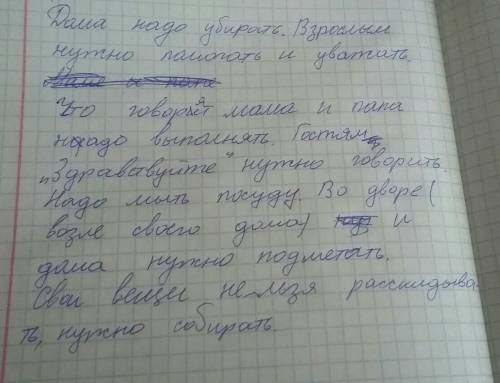 Дома надо убирать. Взрослым
нужно помогать и уважать.
Что говорят мама и папа
надо выполнять. Гостям
„Здравствуйте" нужно говорить.
Надо мыть посуду. Во дворе (
возле своего дома) и
дома нужно подметать.
Свои вещи нельзя раскидыва-
ть, нужно собирать.